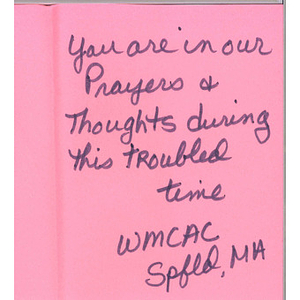 You are in our
Prayers &
Thoughts during
this troubled
time
WMCAC
Spfld, MA